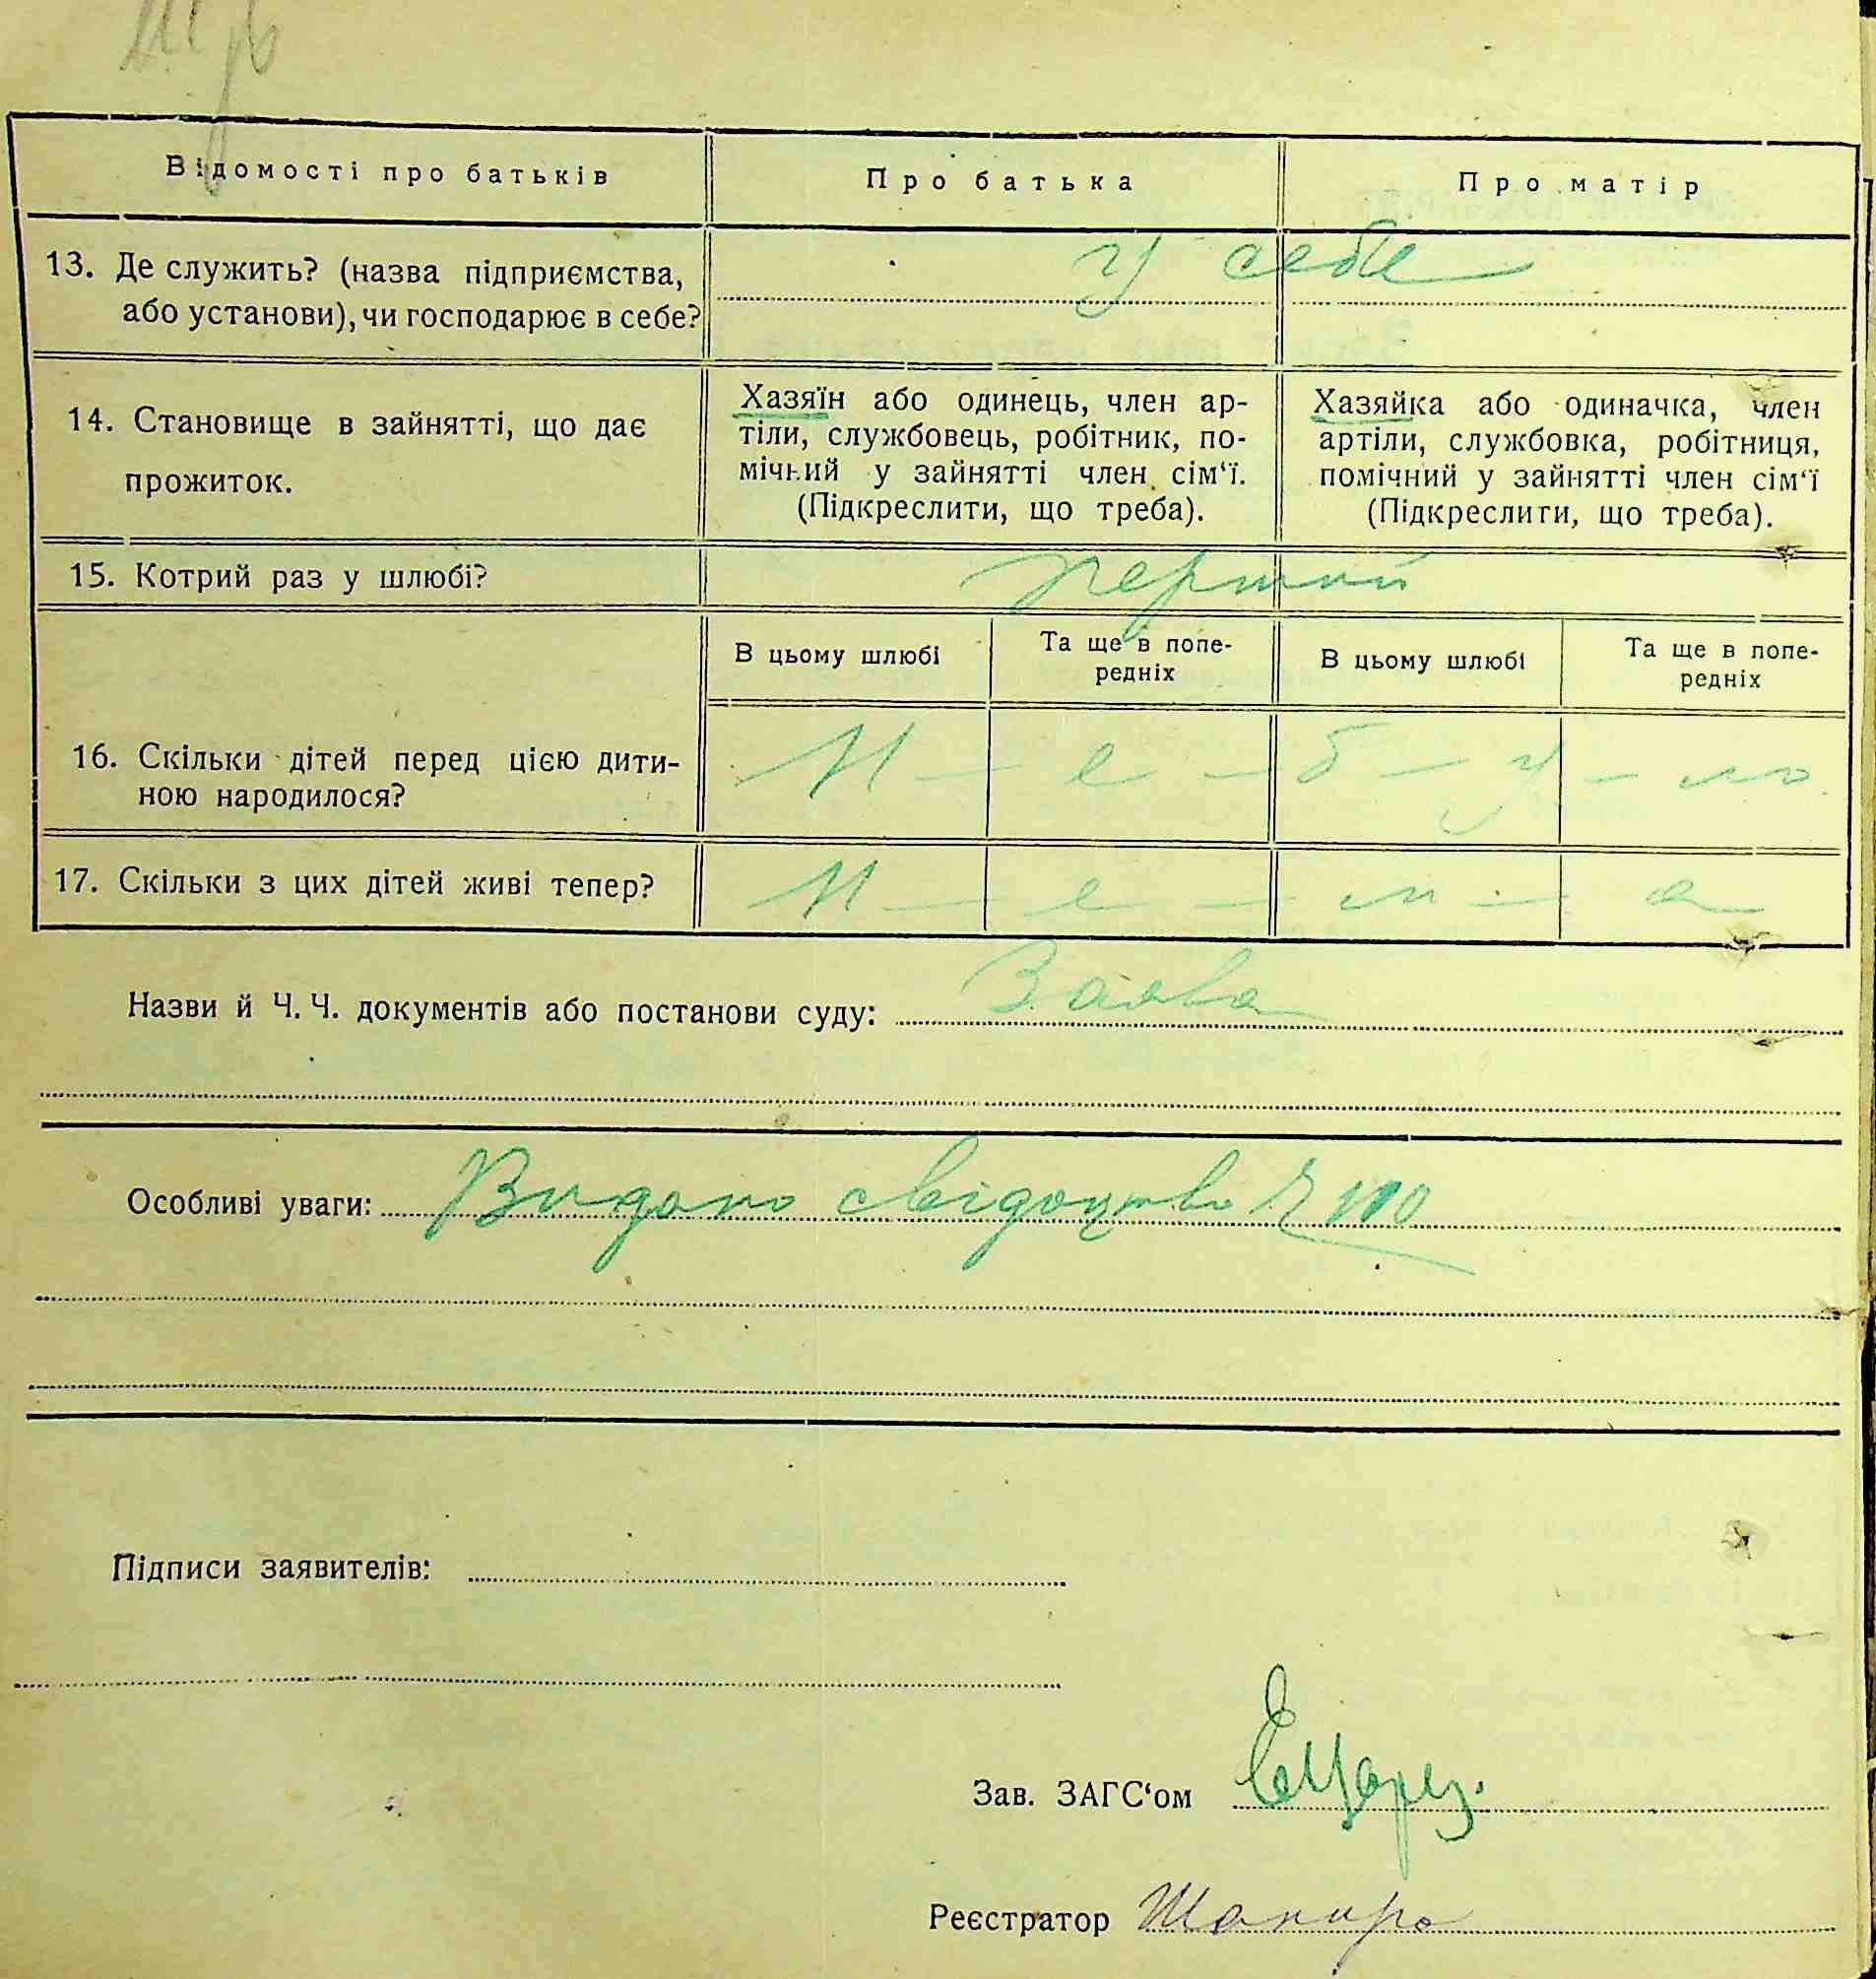 Відомості про батьків Про батька Про матір
13. Де служить? (назва підприємства, у себе
або установи), чи господарює в себе?
14. Становище в зайнятті, що дає
прожиток.
Хазяїн або одинець, член ар-
тіли, службовець, робітник, по-
мічний у зайнятті член сім‘ї.
(Підкреслити, що треба).
Хазяйка або одиначка, член
артіли, службовка, робітниця,
помічний у зайнятті член сім‘ї
(Підкреслити, що треба).
15. Котрий раз у шлюбі? першій
В цьому шлюбі
Та ще в попе-
редніх
В цьому шлюбі
Та ще в попе-
редніх
16. Скільки дітей перед цією дити-
ною народилося?
Н — е — б — у — ло
17. Скільки з цих дітей живі тепер? Н — е — м — а
Назви й Ч. Ч. документів або постанови суду: Заява
Особливі уваги: Видано свідоцтво Ч 110
Підписи заявителів:
Зав. ЗАГС‘ом
Реєстратор Шапиро